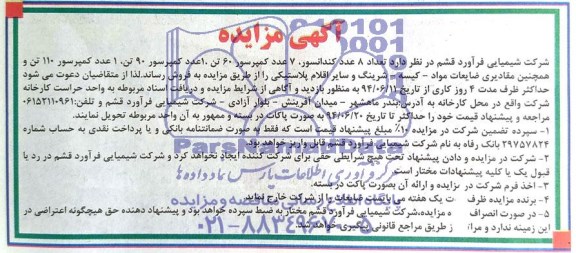 آگهی مزایده
شرکت شیمیایی فرآورد قشم در نظر دارد تعداد ۸ عدد کندانسور، ۷ عدد کمپرسور ۶۰ تن ،۱عدد کمپرسور ۹۰ تن، ۱ عدد کمپرسور ۱۱۰ تن و
همچنین مقادیری ضایعات مواد - کیسه - شرینگ و سایر اقلام پلاستیکی را از طریق مزایده به فروش رساند.لذا از متقاضیان دعوت می شود
حداکثر ظرف مدت ۴ روز کاری از تاریخ ۹۴/۰۶/۱۱ به منظور بازدید و آگاهی از شرایط مزایده و دریافت اسناد مربوطه به واحد حراست کارخانه
شرکت واقع در محل کارخانه به آدرس:بندر ماهشهر - میدان آفرینش - بلوار آزادی - شرکت شیمیایی فرآورد قشم و تلفن:۰۶۱۵۲۱۱۰۹۶۱
مراجعه و پیشنهاد قیمت خود را حداکثر تا تاریخ ۹۴/۰۶/۲۰ به صورت پاکت در بسته و ممهور به آن واحد مربوطه تحویل نمایند.
۱- سپرده تضمین شرکت در مزایده ۱۰٪ مبلغ پیشنهاد قیمت است که فقط به صورت ضمانتنامه بانکی و یا پرداخت نقدی به حساب شماره
۲۹۷۵۷۸۲۴ بانک رفاه به نام شرکت شیمیایی فرآورد قشم قابل واریز خواهد بود.
۲- شرکت در مزایده و دادن پیشنهاد تحت هیچ شرایطی حقی برای شرکت کننده ایجاد نخواهد کرد و شرکت شیمیایی فرآورد قشم در رد یا
قبول یک یا کلیه پیشنهادات مختار است.
۳- اخذ فرم شرکت در مزایده و ارائه آن بصورت پاکت در بسته.
۴- برنده مزایده ظرف یک هفته می بایست ضایعات را از شرکت خارج نماید.
۵- در صورت انصراف مزایده،شرکت شیمیایی فرآورد قشم مختار به ضبط سپرده خواهد بود و پیشنهاد دهنده حق هیچگونه اعتراضی در
این زمینه ندارد و از طریق مراجع قانونی پیگیری خواهد شد.
ParsNamadData
گردآوری اطلاعات پارس نماد داده ها
پایگاه اطلاع رسانی مناقصه و مزایده
۰۲۱-۸۸۳۴۹۶۷۰-۵